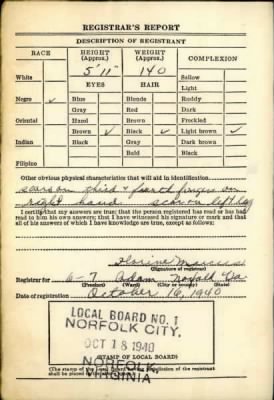 REGISTRAR'S REPORT
DESCRIPTION OF REGISTRANT
RACE HEIGHT (Approx.) WEIGHT (Approx.) COMPLEXION
5' 11" 140
White Sallow
EYES HAIR Light
Negro ✓ Blue Blonde Ruddy
Gray Red Dark
Oriental Hazel Brown Freckled
Brown ✓ Black ✓ Light brown ✓
Indian Black Gray Dark brown
Bald Black
Filipino
Other obvious physical characteristics that will aid in identification
scars on third & fourth fingers on
right hand scar on left leg
I certify that my answers are true; that the person registered has read or has had
read to him his own answers; that I have witnessed his signature or mark and that
all of his answers of which I have knowledge are true, except as follows:
Florine
(Signature of registrar)
Registrar for 6-7 Adam Norfolk Va
(Precinct) (Ward) (City or county) (State)
Date of registration October 16, 1940
LOCAL BOARD NO. 1
NORFOLK CITY,
OCT 18 1940
NORFOLK,
VIRGINIA
(STAMP OF LOCAL BOARD)
(The stamp of the Local Board
shall be placed